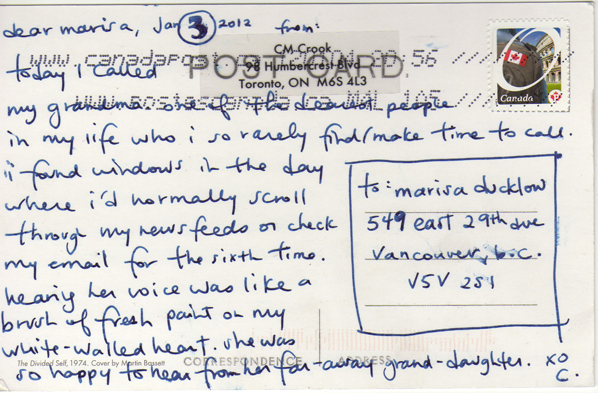 dear marisa, Jan 3 2012 from:
CM Crook
98 Humbercrest Blvd
Toronto, ON M6S 4L3
www.canadapost
POST CARD
Canada
P
today i called
my grandma. one of the dearest people
in my life who i so rarely find/make time to call.
i found windows in the day
where i'd normally scroll
through my newsfeeds or check
my email for the sixth time.
hearing her voice was like a
brush of fresh paint on my
white-walled heart. she was
so happy to hear from her far-away grand-daughter. xo
C.
to: marisa ducklow
549 east 29th ave
Vancouver, b.c.
V5V 2S1
The Divided Self, 1974. Cover by Martin Bassett
CORRESPONDENCE
ADDRESS